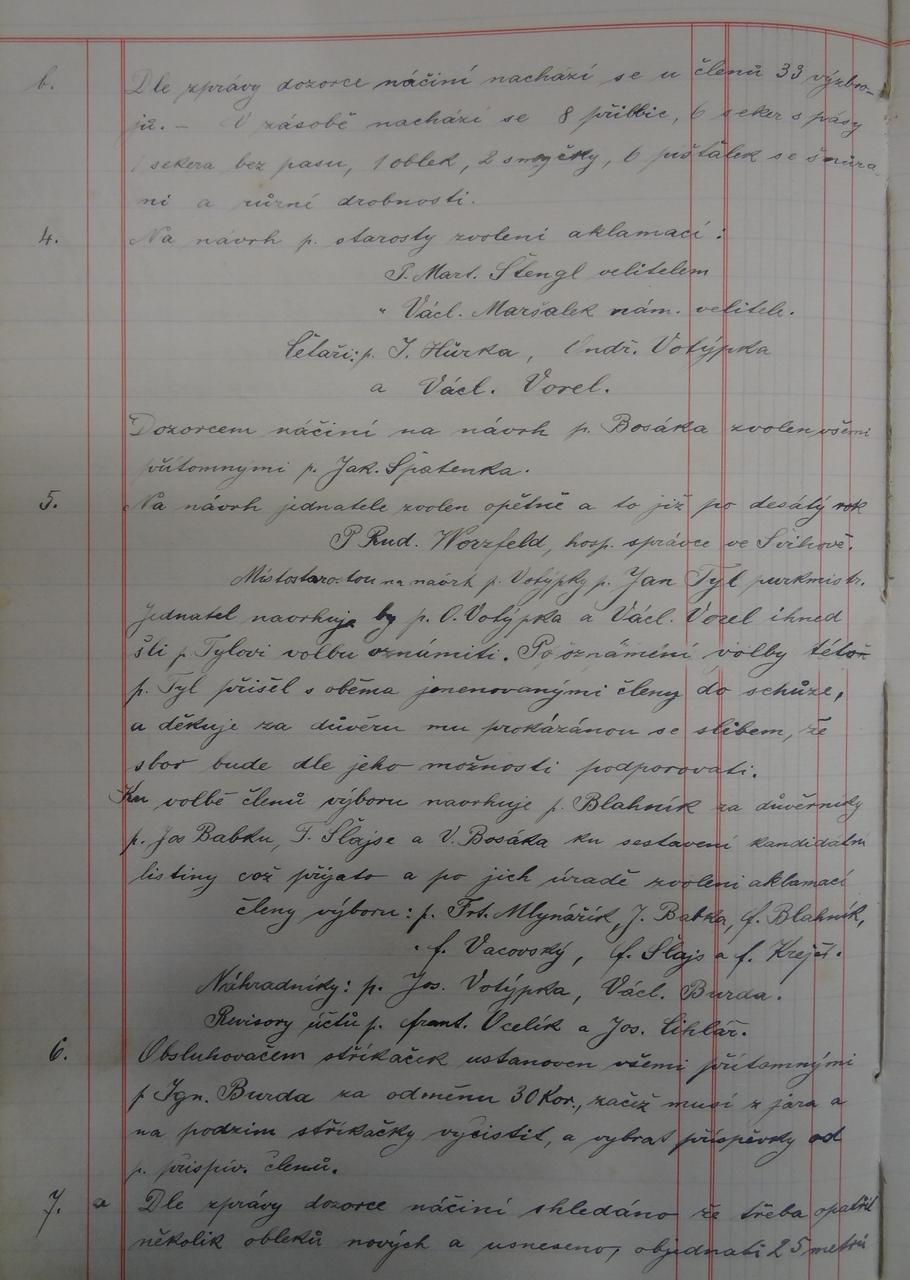 b. Dle zprávy dozorce náčiní nachází se u členů 33 výzbro-
jů. – V zásobě nachází se 8 přilbic, 6 seker s pásy
1 sekera bez pasu, 1 oblek, 2 smyčky, 6 píšťalek se šnůra
mi a různí drobnosti.
4. Na návrh p. starosty zvoleni aklamací:
P. Mart. Štengl velitelem
" Václ. Maršalek nám. velitele.
Četaři: p. J. Hůrka, Ondř. Votýpka
a Václ. Vorel.
Dozorcem náčiní na návrh p. Bosáka zvolen všemi
přítomnými p. Jak. Špatenka.
5. Na návrh jednatele zvolen opětně a to již po desátý rok
P Rud. Worzfeld, hosp. správce ve Švihově.
Místostarostou na návrh p. Votýpky p. Jan Tyl purkmistr.
Jednatel navrhuje by p. O. Votýpka a Václ. Vorel ihned
šli p Tylovi volbu oznámiti. Po oznámení volby tétož
p. Tyl přišel s oběma jmenovanými členy do schůze,
a děkuje za důvěru mu prokázánou se slibem, že
sbor bude dle jeho možnosti podporovati.
Ku volbě členů výboru navrhuje p. Blahník za důvěrníky
p. Jos Babku, F. Šlajse a V. Bosáka ku sestavení kandidátní
listiny což přijato a po jich úradě zvoleni aklamací
členy výboru: p. Frt. Mlynářík, J. Babka, f. Blahník,
" f. Vacovský, f. Šlajs a f. Krejčí.
Náhradníky: p. Jos. Votýpka, Václ. Burda.
Revisory účtů p. frant. Včelík a Jos. Cihlář.
6. Obsluhovačem stříkaček ustanoven všemi přítomnými
p Ign. Burda za odměnu 30 Kor., začíž musí z jara a
na podzim stříkačky vyčistit, a vybrat příspěvky od
p. přispív. členů.
7. a Dle zprávy dozorce náčiní shledáno že třeba opatřit
několik obleků nových a usneseno, objednati 25 metrů